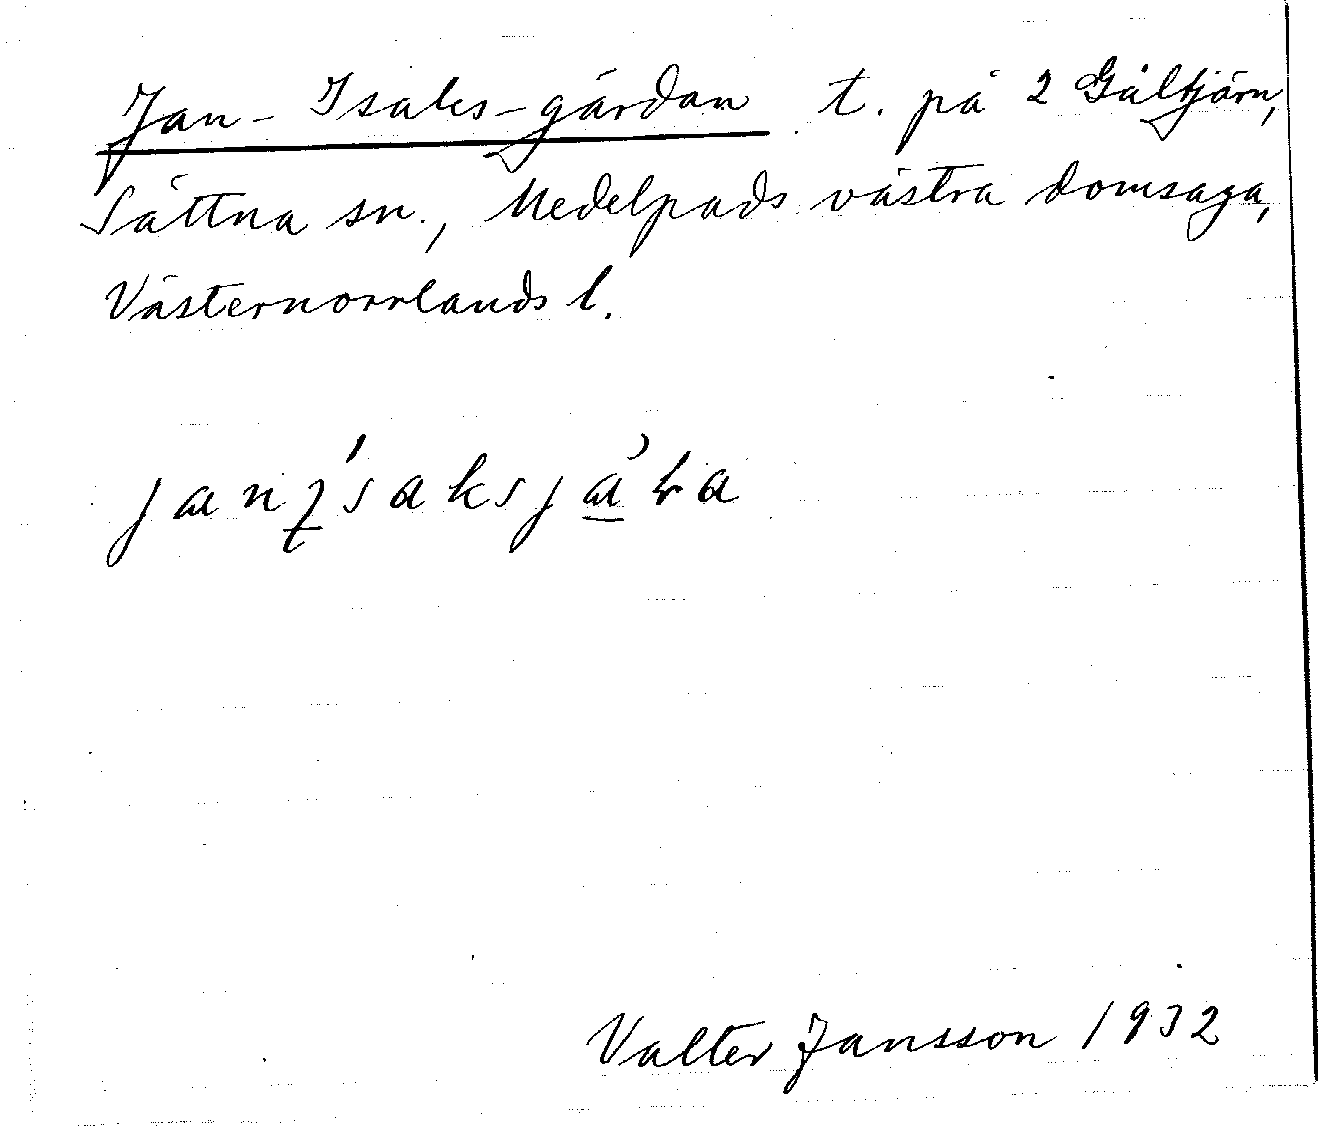 Jan-Isaks-gårdan t. på 2 Gåltjärn,
Sättna sn., Medelpads västra domsaga,
Västernorrlands l.
Valter Jansson 1932